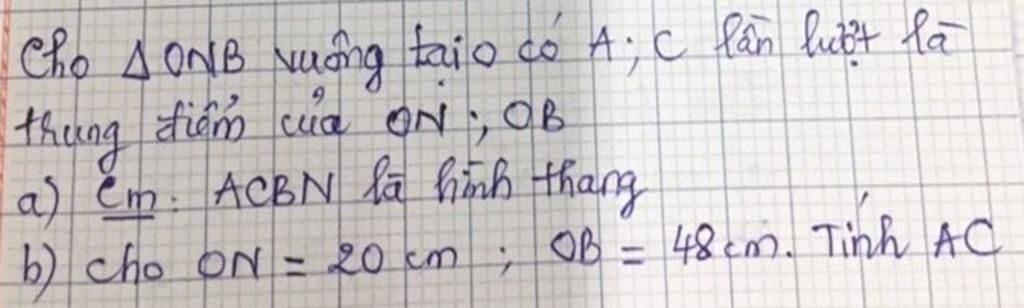 Cho Δ ONB vuông tại O có A; C lần lượt là
trung điểm của ON; OB
a) Cm: ACBN là hình thang
b) Cho ON = 20 cm ; OB = 48 cm. Tính AC